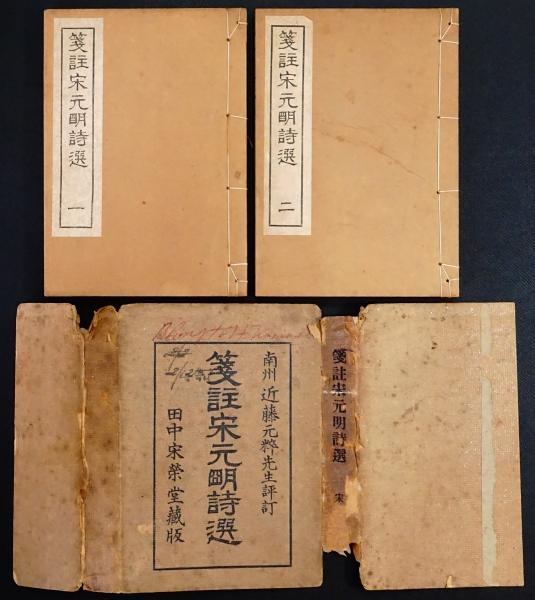 箋註宋元明詩選
一
箋註宋元明詩選
二
南州 近藤元粹先生評訂
箋註宋元明詩選
田中宋榮堂藏版
箋註宋元明詩選
宋